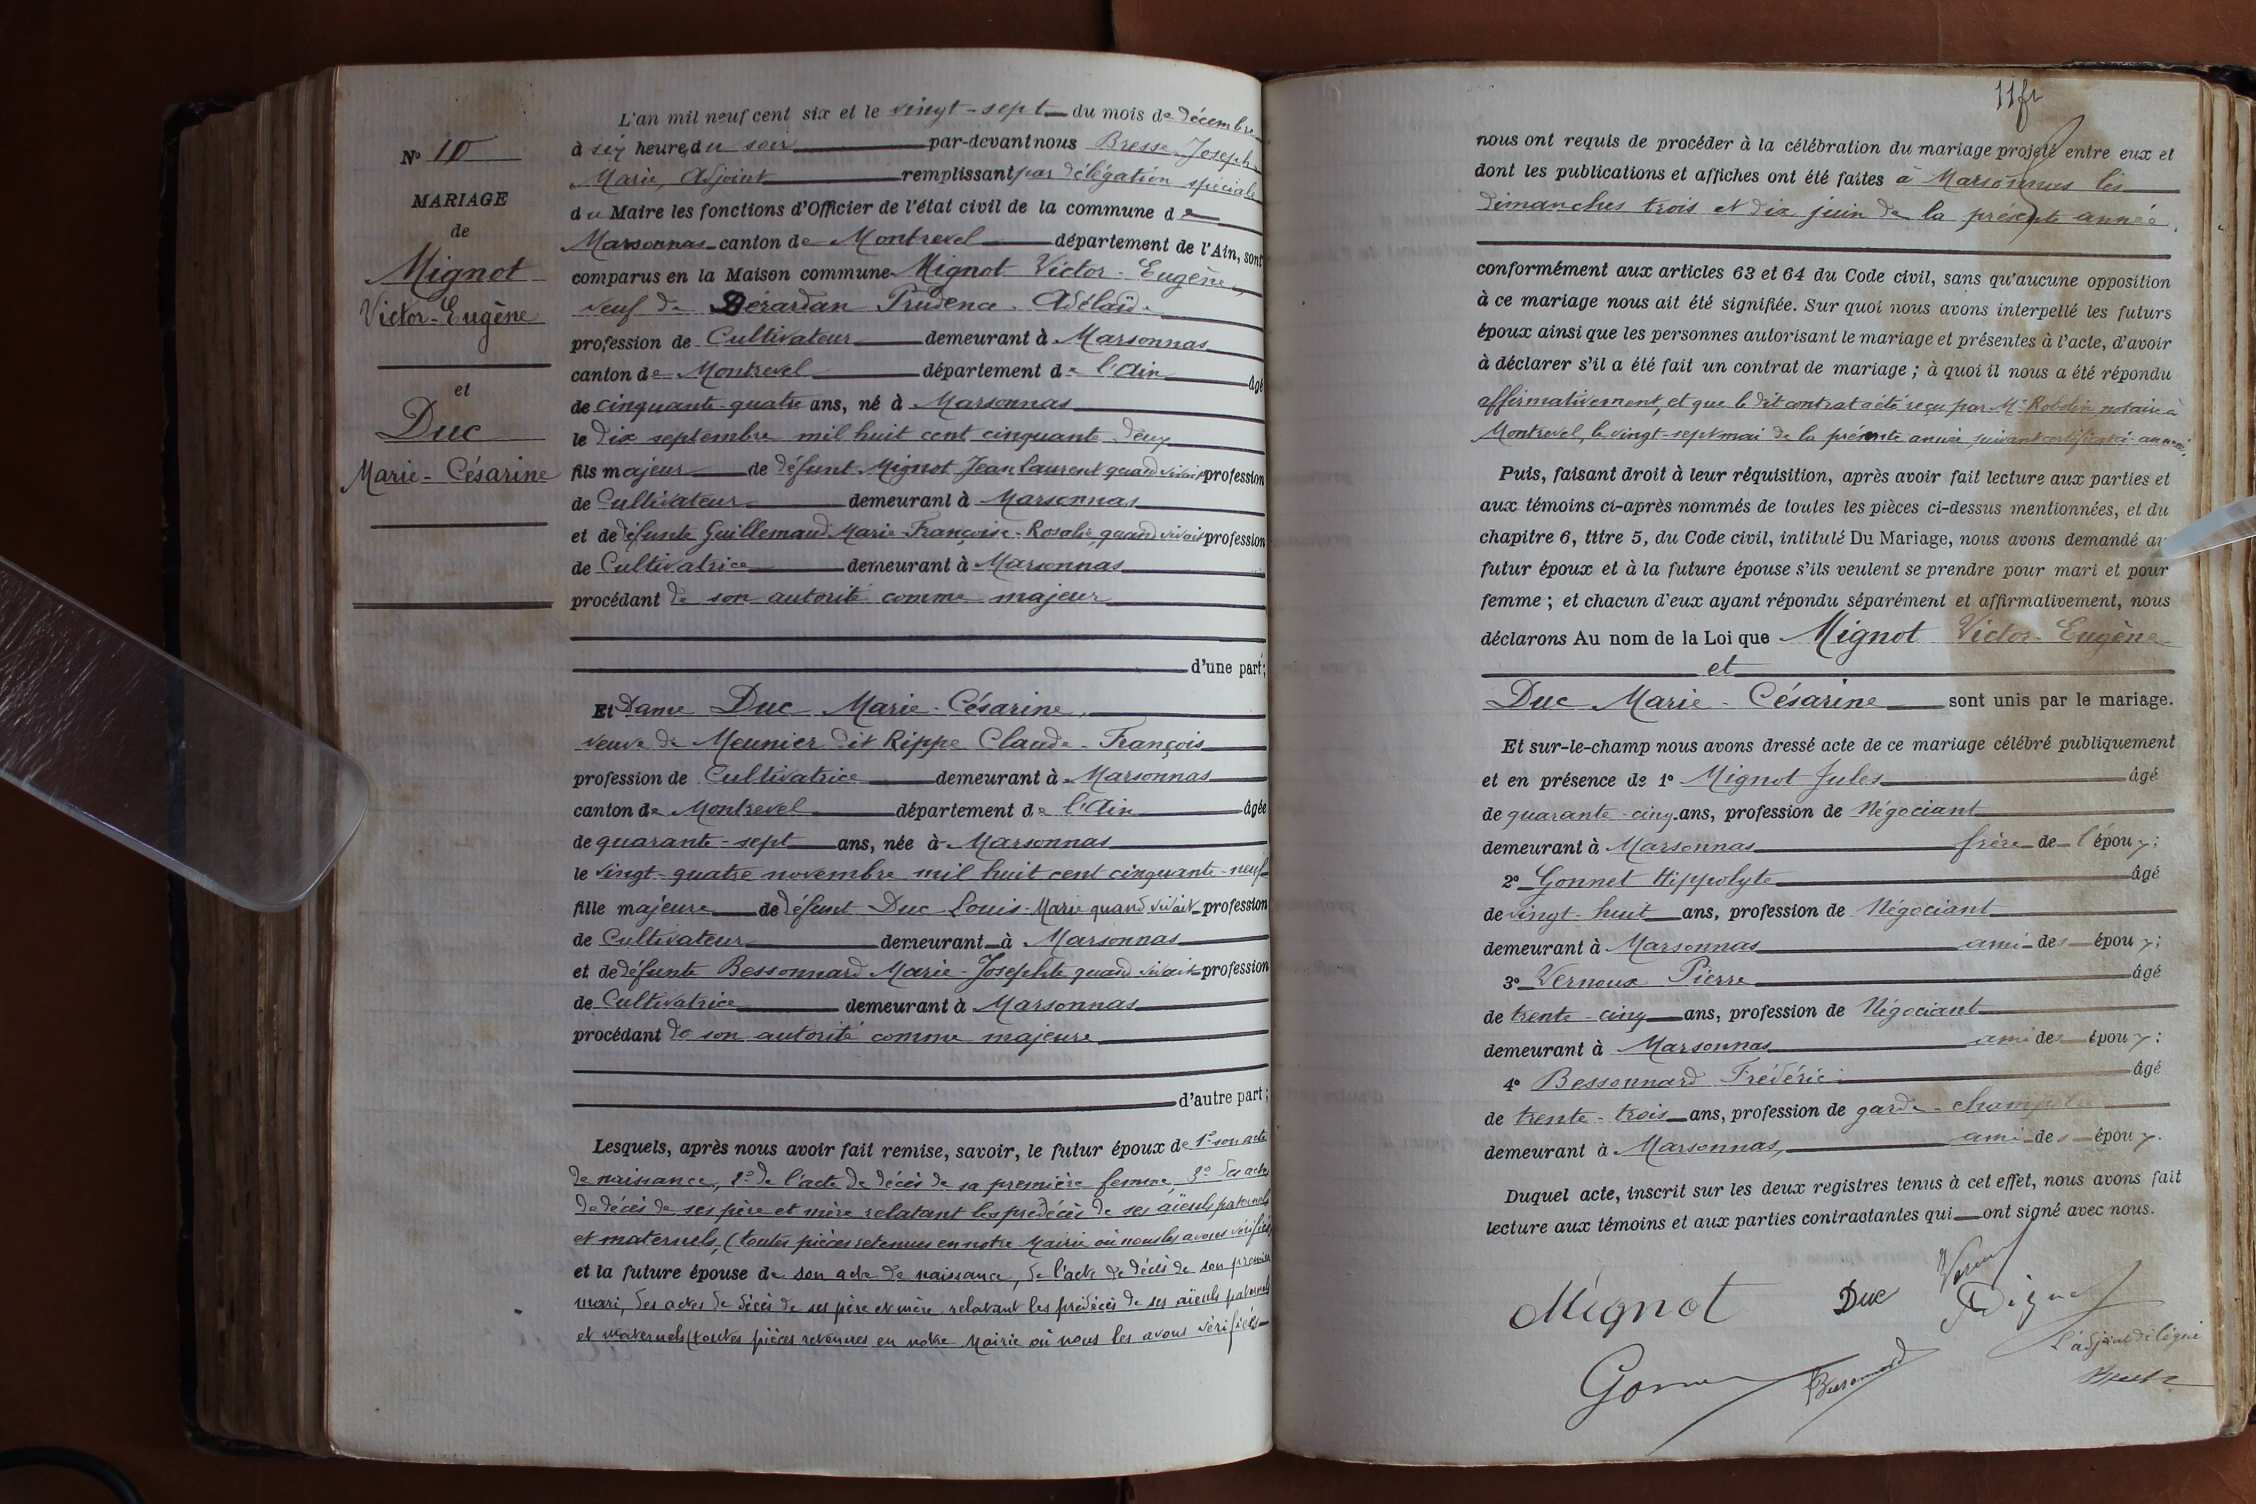 N° 10
MARIAGE
de
Mignot
Victor-Eugène
et
Duc
Marie-Césarine
L'an mil neuf cent six et le vingt-sept du mois de décembre
à six heure du soir par-devant nous Bresse Joseph
Marie, Adjoint remplissant par délégation spéciale
du Maire les fonctions d'Officier de l'état civil de la commune de
Marsonnas canton de Montrevel département de l'Ain, sont
comparus en la Maison commune Mignot Victor-Eugène,
veuf de Bérardan Prudence Adélaïde
profession de Cultivateur demeurant à Marsonnas
canton de Montrevel département de l'Ain âgé
de cinquante-quatre ans, né à Marsonnas
le dix septembre mil huit cent cinquante deux
fils majeur de défunt Mignot Jean Laurent quand vivait profession
de Cultivateur demeurant à Marsonnas
et de défunte Guillemaud Marie-Françoise-Rosalie, quand vivait profession
de Cultivatrice demeurant à Marsonnas
procédant de son autorité comme majeur
d'une part;
Et Dame Duc Marie-Césarine,
veuve de Meunier dit Rippe Claude-François
profession de Cultivatrice demeurant à Marsonnas
canton de Montrevel département de l'Ain âgée
de quarante-sept ans, née à Marsonnas
le vingt-quatre novembre mil huit cent cinquante-neuf
fille majeure de défunt Duc Louis-Marie quand vivait profession
de Cultivateur demeurant à Marsonnas
et de défunte Bessonnard Marie-Josephte quand vivait profession
de Cultivatrice demeurant à Marsonnas
procédant de son autorité comme majeure
d'autre part;
Lesquels, après nous avoir fait remise, savoir, le futur époux de 1° son acte
de naissance, 2° de l'acte de décès de sa première femme, 3° des actes
de décès de ses père et mère relatant les prédécès de ses aïeuls paternels
et maternels, (toutes pièces retenues en notre Mairie où nous les avons vérifiées
et la future épouse de son acte de naissance, de l'acte de décès de son premier
mari, des actes de décès de ses père et mère relatant les prédécès de ses aïeuls paternels
et maternels (toutes pièces retenues en notre Mairie où nous les avons vérifiées
11
nous ont requis de procéder à la célébration du mariage projeté entre eux et
dont les publications et affiches ont été faites à Marsonnas les
dimanches trois et dix juin de la présente année,
conformément aux articles 63 et 64 du Code civil, sans qu'aucune opposition
à ce mariage nous ait été signifiée. Sur quoi nous avons interpellé les futurs
époux ainsi que les personnes autorisant le mariage et présentes à l'acte, d'avoir
à déclarer s'il a été fait un contrat de mariage; à quoi il nous a été répondu
affirmativement, et que le dit contrat a été reçu par Me Robelin notaire à
Montrevel, le vingt-sept mai de la présente année, suivant certificat ci-annexé,
Puis, faisant droit à leur réquisition, après avoir fait lecture aux parties et
aux témoins ci-après nommés de toutes les pièces ci-dessus mentionnées, et du
chapitre 6, titre 5, du Code civil, intitulé Du Mariage, nous avons demandé au
futur époux et à la future épouse s'ils veulent se prendre pour mari et pour
femme; et chacun d'eux ayant répondu séparément et affirmativement, nous
déclarons Au nom de la Loi que Mignot Victor-Eugène
et
Duc Marie-Césarine sont unis par le mariage.
Et sur-le-champ nous avons dressé acte de ce mariage célébré publiquement
et en présence de 1° Mignot Jules âgé
de quarante-cinq ans, profession de Négociant
demeurant à Marsonnas frère de l'époux;
2° Gonnet Hippolyte âgé
de vingt-huit ans, profession de Négociant
demeurant à Marsonnas ami des époux;
3° Vernoux Pierre âgé
de trente-cinq ans, profession de Négociant
demeurant à Marsonnas ami des époux;
4° Bessonnard Frédéric âgé
de trente-trois ans, profession de garde-champêtre
demeurant à Marsonnas, ami des époux.
Duquel acte, inscrit sur les deux registres tenus à cet effet, nous avons fait
lecture aux témoins et aux parties contractantes qui ont signé avec nous.
Mignot Duc
L'adjoint délégué
Bessonnard